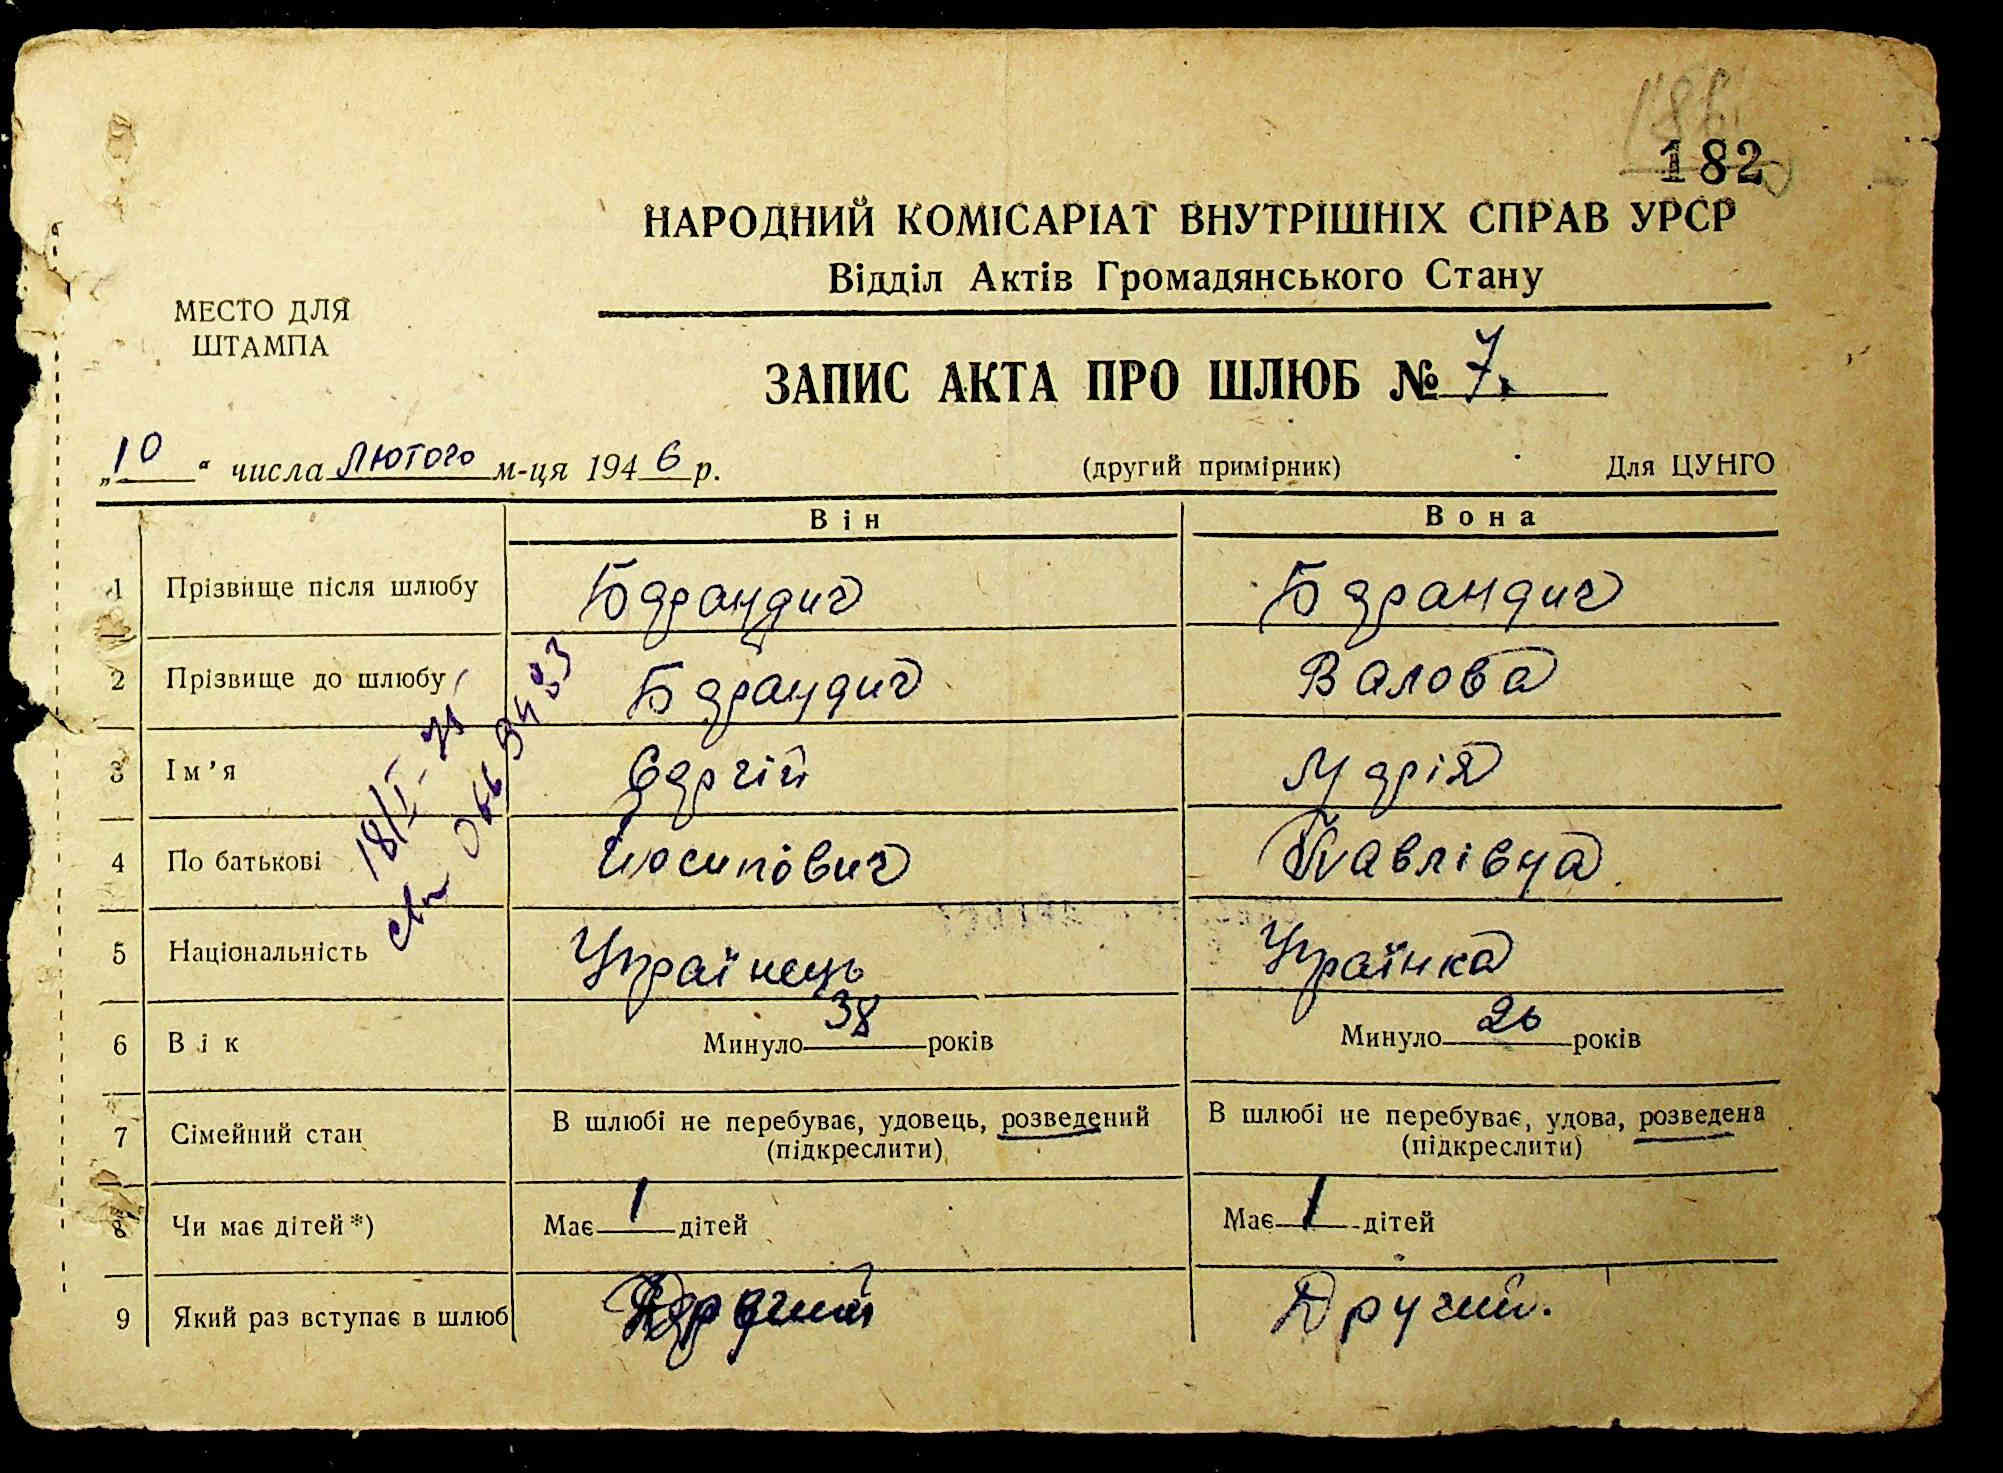 182
НАРОДНИЙ КОМІСАРІАТ ВНУТРІШНІХ СПРАВ УРСР
Відділ Актів Громадянського Стану
МЕСТО ДЛЯ
ШТАМПА
ЗАПИС АКТА ПРО ШЛЮБ № 7.
„10“ числа Лютого м-ця 1946 р. (другий примірник) Для ЦУНГО
Він Вона
1 Прізвище після шлюбу Барандич Барандич
2 Прізвище до шлюбу Барандич Валова
3 Ім’я Сергій Марія
4 По батькові Йосипович Павлівна
5 Національність Українець Українка
6 Вік Минуло 38 років Минуло 26 років
7 Сімейний стан В шлюбі не перебуває, удовець, розведений В шлюбі не перебуває, удова, розведена
(підкреслити) (підкреслити)
8 Чи має дітей*) Має 1 дітей Має 1 дітей
9 Який раз вступає в шлюб Другий Другий.
18/I-71